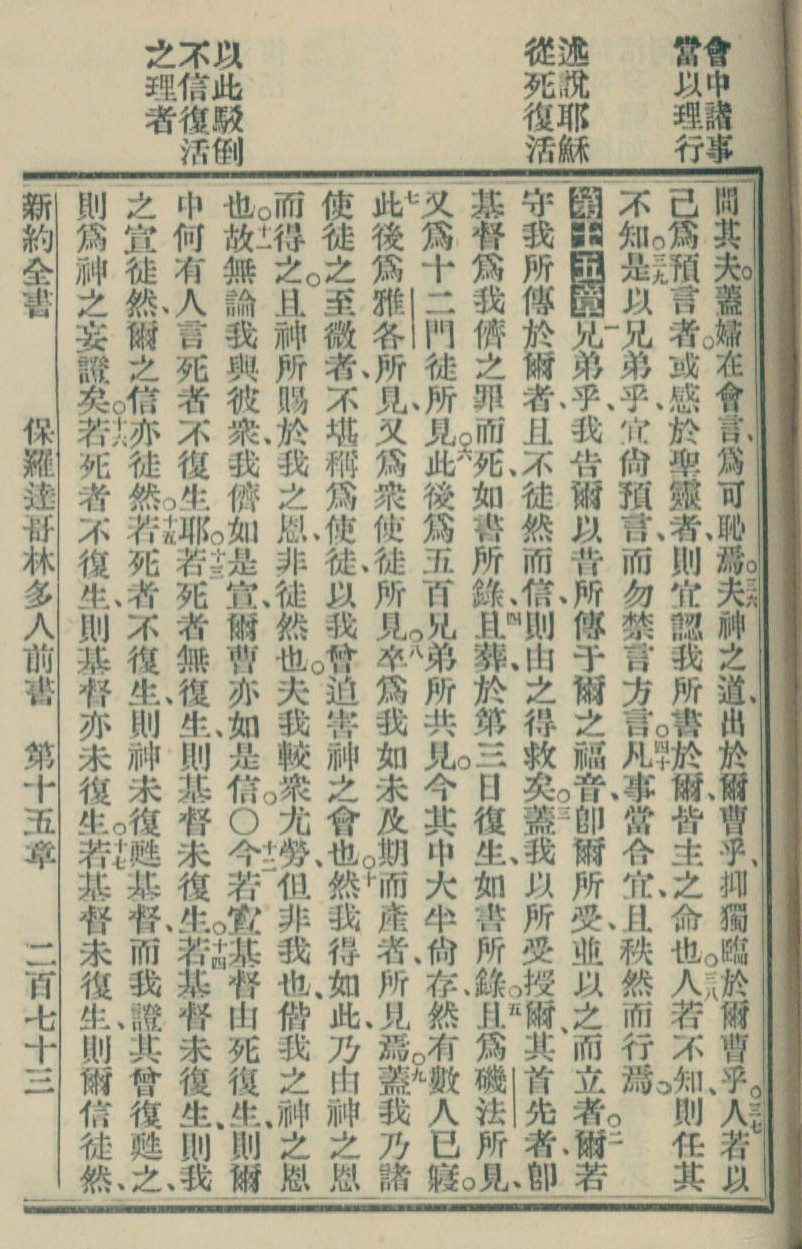 會中諸事
當以理行
述說耶穌
從死復活
以此駁倒
不信復活
之理者
問其夫。蓋婦在會言、爲可恥焉。三六夫神之道、出於爾曹乎、抑獨臨於爾曹乎。三七人若以
己爲預言者。或感於聖靈者、則宜認我所書於爾、皆主之命也。三八人若不知、則任其
不知。三九是以兄弟乎、宜尙預言、而勿禁言方言。四十凡事當合宜、且秩然而行焉。
第十五章一兄弟乎、我告爾以昔所傳于爾之福音、卽爾所受、並以之而立者。二爾若
守我所傳於爾者、且不徒然而信、則由之得救矣。三蓋我以所受授爾、其首先者、卽
基督爲我儕之罪而死、如書所錄、四且葬、於第三日復生、如書所錄。五且爲磯法所見、
又爲十二門徒所見。六此後爲五百兄弟所共見。今其中大半尙存、然有數人已寢。
七此後爲雅各所見、又爲衆使徒所見。八卒爲我如未及期而產者、所見焉。九蓋我乃諸
使徒之至微者、不堪稱爲使徒、以我曾迫害神之會也。十然我得如此、乃由神之恩
而得之。且神所賜於我之恩、非徒然也。夫我較衆尤勞、但非我也、偕我之神之恩
也。十一故無論我與彼衆、我儕如是宣、爾曹亦如是信。〇十二今若宣基督由死復生、則爾
中何有人言死者不復生耶。十三若死者無復生、則基督未復生。十四若基督未復生、則我
之宣徒然、爾之信亦徒然。十五若死者不復生、則神未復甦基督、而我證其曾復甦之、
則爲神之妄證矣。十六若死者不復生、則基督亦未復生。十七若基督未復生、則爾信徒然、
新約全書 保羅達哥林多人前書 第十五章 二百七十三